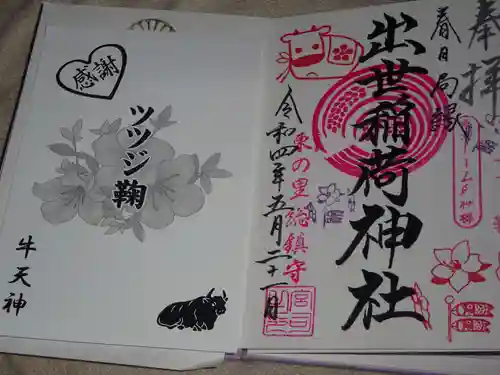 奉拝
春日局縁
出世稲荷神社
東の里総鎮守
令和四年五月二十一日
感謝
ツツジ鞠
牛天神